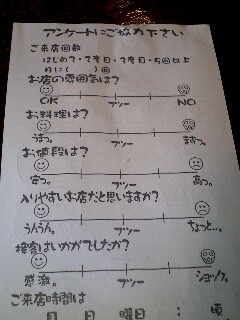 アンケートにご協力下さい
ご来店回数
はじめて・2度目・3度目・5回以上
月に(　　)回
お店の雰囲気は?
OK フツー NO
お料理は?
うまっ。 フツー まずっ。
お値段は?
安っ。 フツー 高っ。
入りやすいお店だと思いますか?
うんうん。 フツー ちょっと…。
接客はいかがでしたか?
感激。 フツー ショック。
ご来店時間は
月 日 曜日 : 頃